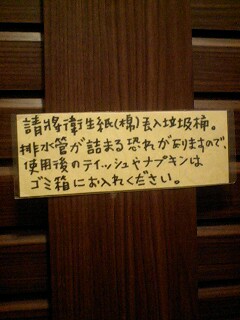 請將衛生紙(棉)丟入垃圾桶。
排水管が詰まる恐れが有りますので、
使用後のティッシュやナプキンは
ゴミ箱にお入れください。